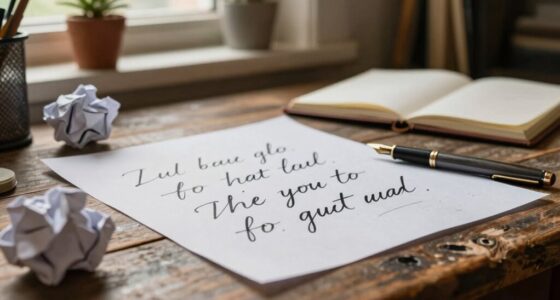 Zul bau glo.
fo hat laul.
The you to
fo. gut uad.